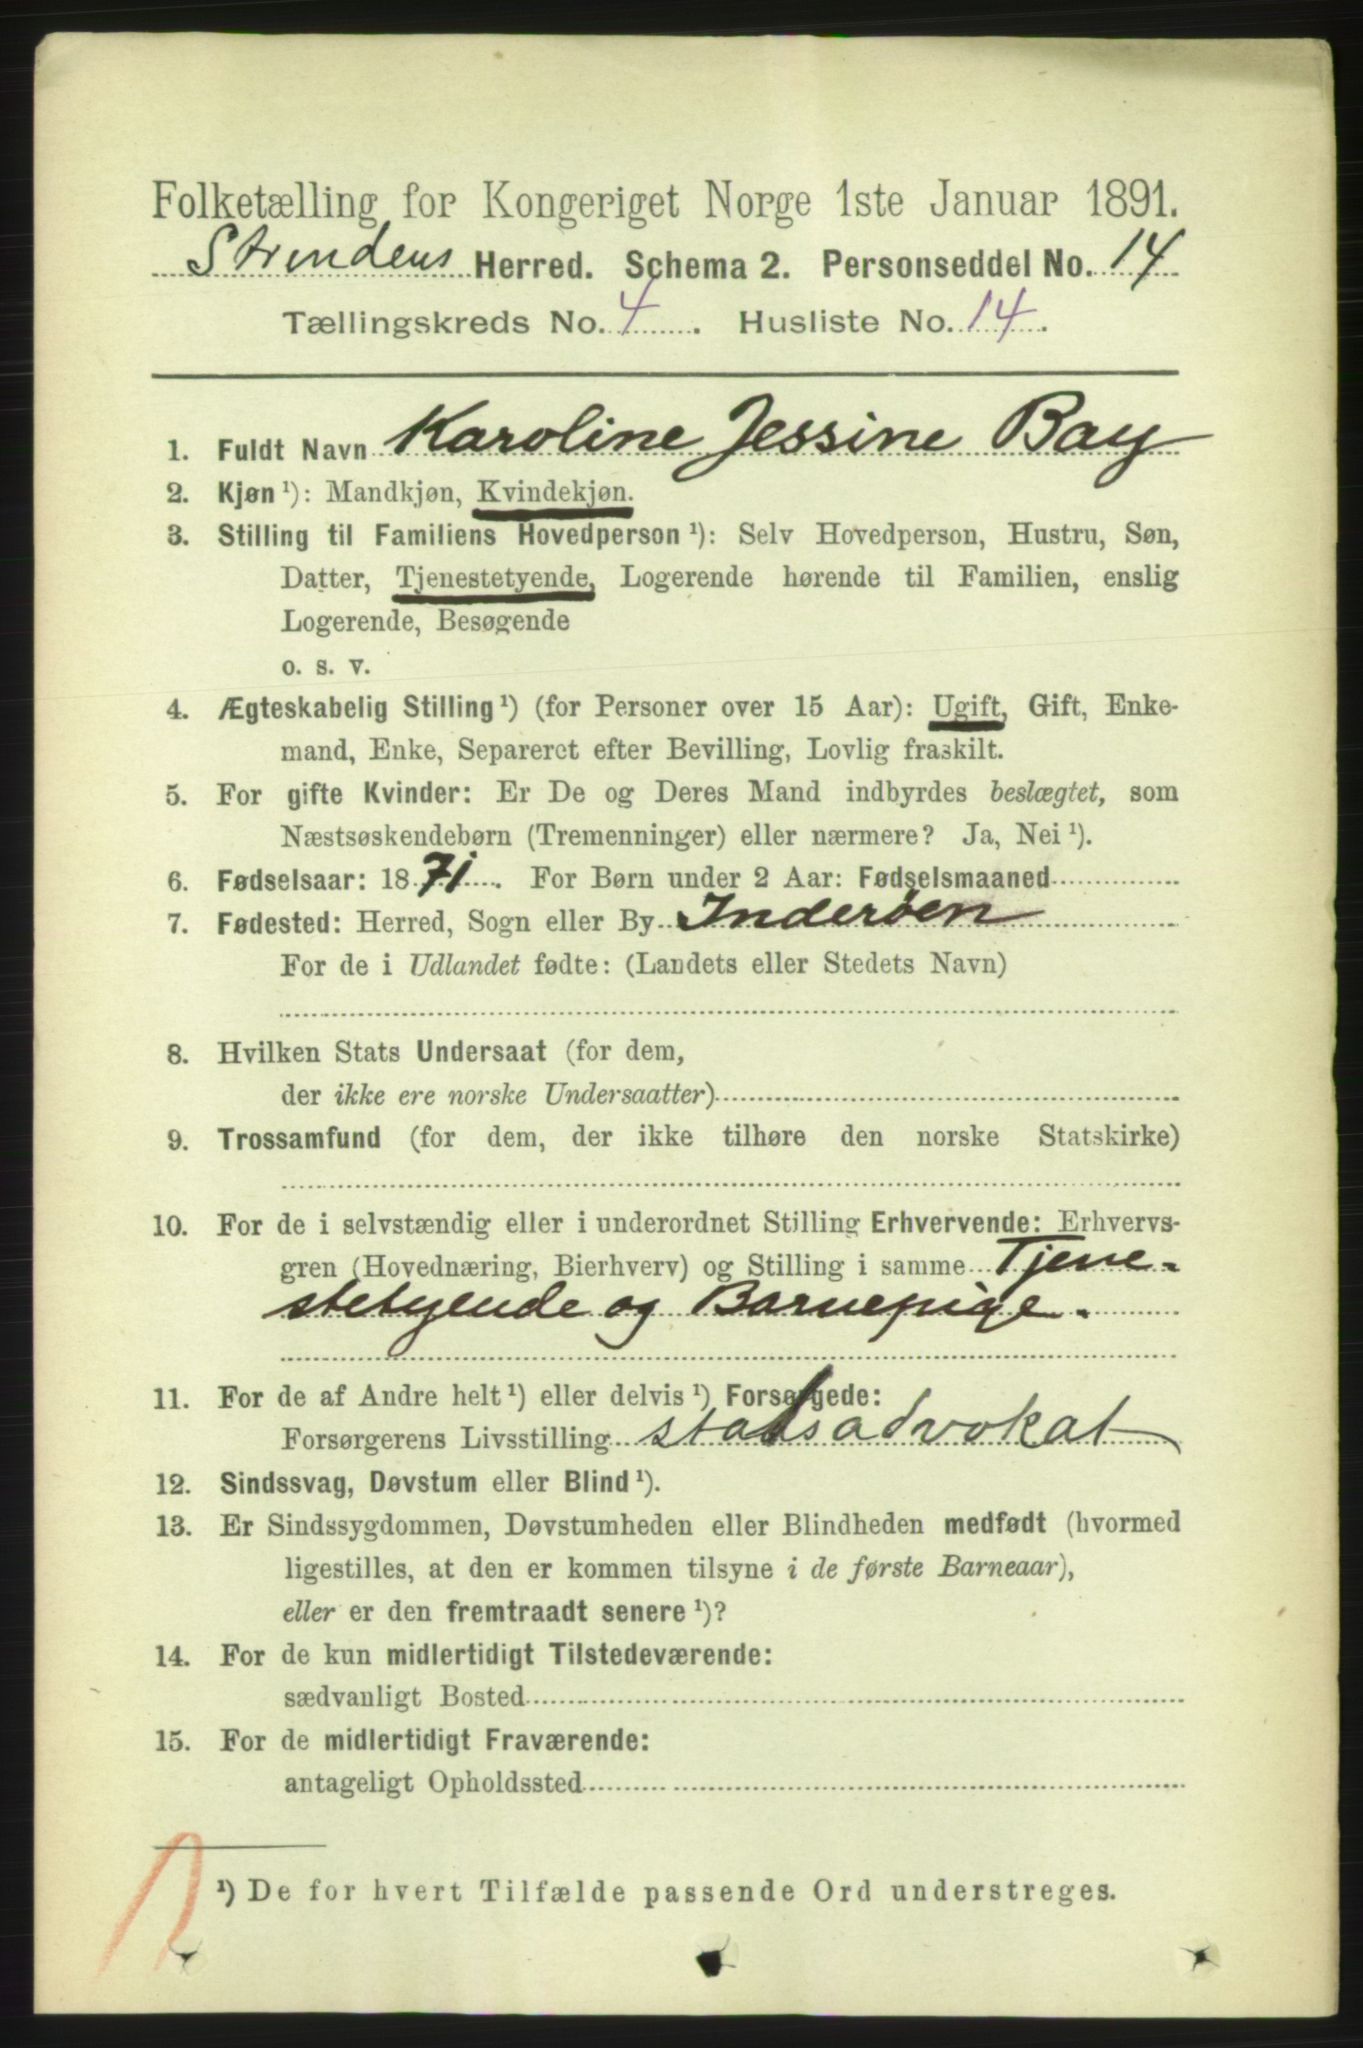 Folketælling for Kongeriget Norge 1ste Januar 1891.
Strindens Herred. Schema 2. Personseddel No. 14
Tællingskreds No. 4. Husliste No. 14.
1. Fuldt Navn Karoline Jessine Bay
2. Kjøn ¹): Mandkjøn, Kvindekjøn.
3. Stilling til Familiens Hovedperson ¹): Selv Hovedperson, Hustru, Søn,
Datter, Tjenestetyende, Logerende hørende til Familien, enslig
Logerende, Besøgende
o. s. v.
4. Ægteskabelig Stilling ¹) (for Personer over 15 Aar): Ugift, Gift, Enke-
mand, Enke, Separeret efter Bevilling, Lovlig fraskilt.
5. For gifte Kvinder: Er De og Deres Mand indbyrdes beslægtet, som
Næstsøskendebørn (Tremenninger) eller nærmere? Ja, Nei ¹).
6. Fødselsaar: 1871. For Børn under 2 Aar: Fødselsmaaned
7. Fødested: Herred, Sogn eller By Inderøen
For de i Udlandet fødte: (Landets eller Stedets Navn)
8. Hvilken Stats Undersaat (for dem,
der ikke ere norske Undersaatter)
9. Trossamfund (for dem, der ikke tilhøre den norske Statskirke)
10. For de i selvstændig eller i underordnet Stilling Erhvervende: Erhvervs-
gren (Hovednæring, Bierhverv) og Stilling i samme Tjene-
stetyende og Barnepige.
11. For de af Andre helt ¹) eller delvis ¹) Forsørgede:
Forsørgerens Livsstilling statsadvokat
12. Sindssvag, Døvstum eller Blind ¹).
13. Er Sindssygdommen, Døvstumheden eller Blindheden medfødt (hvormed
ligestilles, at den er kommen tilsyne i de første Barneaar),
eller er den fremtraadt senere ¹)?
14. For de kun midlertidigt Tilstedeværende:
sædvanligt Bosted
15. For de midlertidigt Fraværende:
antageligt Opholdssted
¹) De for hvert Tilfælde passende Ord understreges.